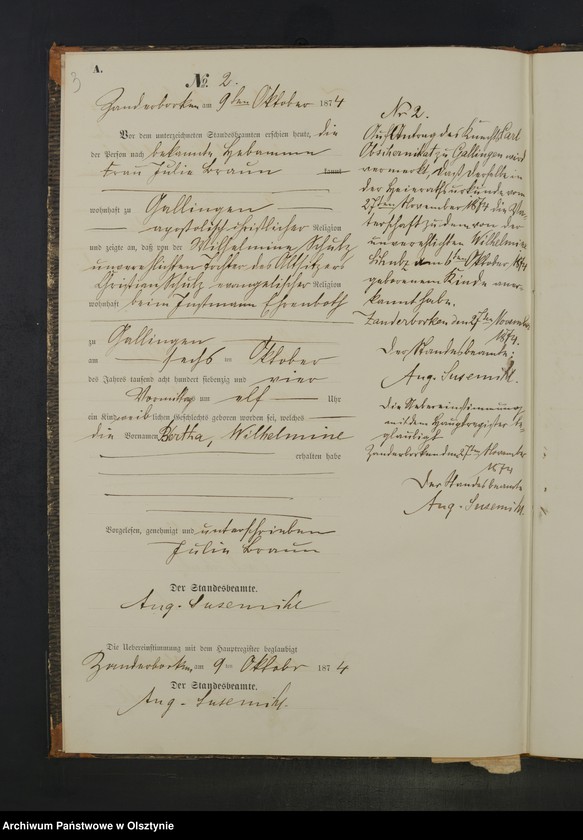 3
A.
No. 2.
Zanderborken am 9ten Oktober 1874
Vor dem unterzeichneten Standesbeamten erschien heute, die
der Person nach bekannte Hebamme
Frau Julie Braun
kannt
wohnhaft zu Gallingen
apostolisch christlicher Religion
und zeigte an, daß von der Wilhelmine Schulz
unverehelichten Tochter des Altsitzers
Christian Schulz evangelischer Religion
wohnhaft beim Instmann Ehrenboth
zu Gallingen
am sechs ten Oktober
des Jahres tausend acht hundert siebenzig und vier
Vormittags um elf Uhr
ein Kind weiblichen Geschlechts geboren worden sei, welches
die Vornamen Bertha, Wilhelmine
erhalten habe
Vorgelesen, genehmigt und unterschrieben
Julie Braun
Der Standesbeamte.
Aug. Susemihl
Die Uebereinstimmung mit dem Hauptregister beglaubigt
Zanderborken am 9ten Oktober 1874
Der Standesbeamte.
Aug. Susemihl.
Nr. 2.
Auf Antrag des Knechts Carl
zu Gallingen wird
vermerkt, daß derselbe in
der Heirathsurkunde vom
27ten November 1874 die Va-
terschaft zu dem von der
unverehelichten Wilhelmine
Schulz am 6ten Oktober 1874
geborenen Kinde aner-
kannt habe.
Zanderborken den 27ten November
1874.
Der Standesbeamte:
Aug. Susemihl.
Die Uebereinstimmung
mit dem Hauptregister be-
glaubigt
Zanderborken den 27ten November
1874
Der Standesbeamte
Aug. Susemihl.
Archiwum Państwowe w Olsztynie